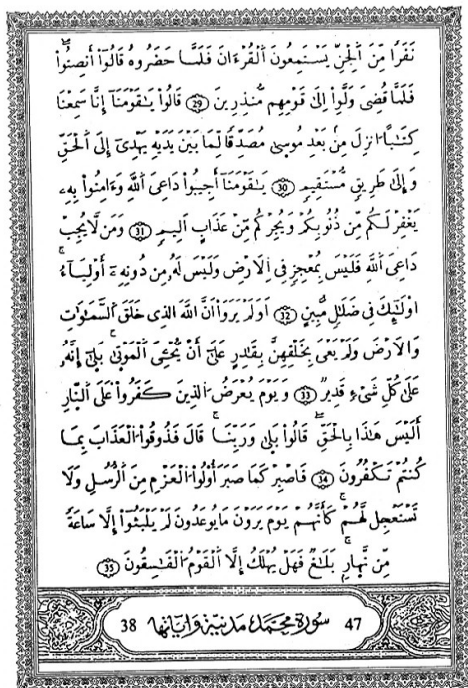 نَفَرًا مِّنَ اَ۬لْجِنِّ يَسْتَمِعُونَ اَ۬لْقُرْءَانَ فَلَمَّا حَضَرُوهُ قَالُوٓاْ أَنصِتُواْۖ
فَلَمَّا قُضِىَ وَلَّوْاْ اِلَىٰ قَوْمِهِم مُّنذِرِينَ 29 قَالُواْ يَٰقَوْمَنَآ إِنَّا سَمِعْنَا
كِتَٰباً ا۟نزِلَ مِنۢ بَعْدِ مُوسىٰ مُصَدِّقاً لِّمَا بَيْنَ يَدَيْهِ يَهْدِىٓ إِلَى اَ۬لْحَقِّ
وَإِلَىٰ طَرِيقٍ مُّسْتَقِيمٍ 30 يَٰقَوْمَنَآ أَجِيبُواْ دَاعِىَ اَ۬للَّهِ وَءَامِنُواْ بِهِۦ
يَغْفِرْ لَكُم مِّن ذُنُوبِكُمْ وَيُجِرْكُم مِّنْ عَذَابٍ اَلِيمٍ 31 وَمَن لَّا يُجِبْ
دَاعِىَ اَ۬للَّهِ فَلَيْسَ بِمُعْجِزٍ فِى اِ۬لَارْضِ وَلَيْسَ لَهُۥ مِن دُونِهِۦٓ أَوْلِيَآءُۚ
ا۟وْلَٰٓئِكَ فِى ضَلَٰلٍ مُّبِينٍ 32 اَوَلَمْ يَرَوَاْ اَنَّ اَ۬للَّهَ اَ۬لذِى خَلَقَ اَ۬لسَّمَٰوَٰتِ
وَالَارْضَ وَلَمْ يَعْىَ بِخَلْقِهِنَّ بِقَٰدِرٍ عَلَىٰٓ أَنْ يُّحْۦِىَ اَ۬لْمَوْتىٰۚ بَلىٰٓ إِنَّهُۥ
عَلَىٰ كُلِّ شَىْءٍ قَدِيرٌ 33 وَيَوْمَ يُعْرَضُ اُ۬لذِينَ كَفَرُواْ عَلَى اَ۬لنّارِ
أَلَيْسَ هَٰذَا بِالْحَقِّۖ قَالُواْ بَلىٰ وَرَبِّنَاۚ قَالَ فَذُوقُواْ اُ۬لْعَذَابَ بِمَا
كُنتُمْ تَكْفُرُونَ 34 فَاصْبِرْ كَمَا صَبَرَ أُوْلُواْ اُ۬لْعَزْمِ مِنَ اَ۬لرُّسُلِ وَلَا
تَسْتَعْجِل لَّهُمْۚ كَأَنَّهُمْ يَوْمَ يَرَوْنَ مَا يُوعَدُونَ لَمْ يَلْبَثُوٓاْ إِلَّا سَاعَةً
مِّن نَّهارٍۚ بَلَٰغٌ فَهَلْ يُهْلَكُ إِلَّا اَ۬لْقَوْمُ اُ۬لْفَٰسِقُونَ 35
47 سورة محمد مدنية وآياتها 38